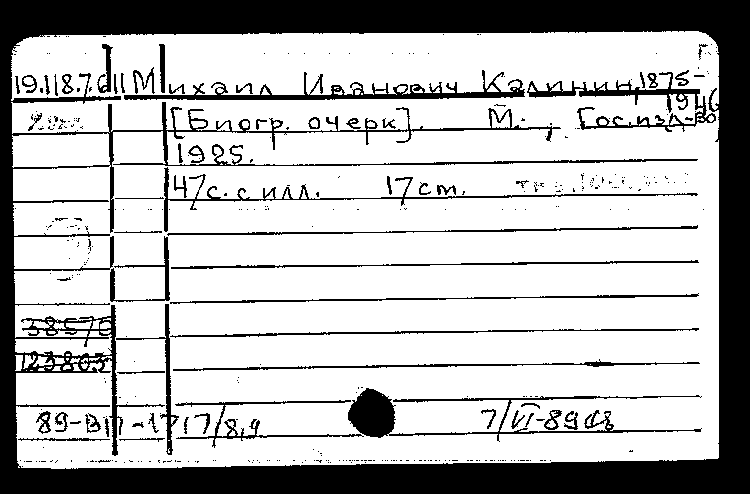 19.118.7.6 11 Михаил Иванович Калинин, 1875-
1946
[Биогр. очерк]. М., Гос.изд-во
1925.
47с. с илл. 17 ст.
38576
123803
89-ВП-1717/8,9 7/VI-89